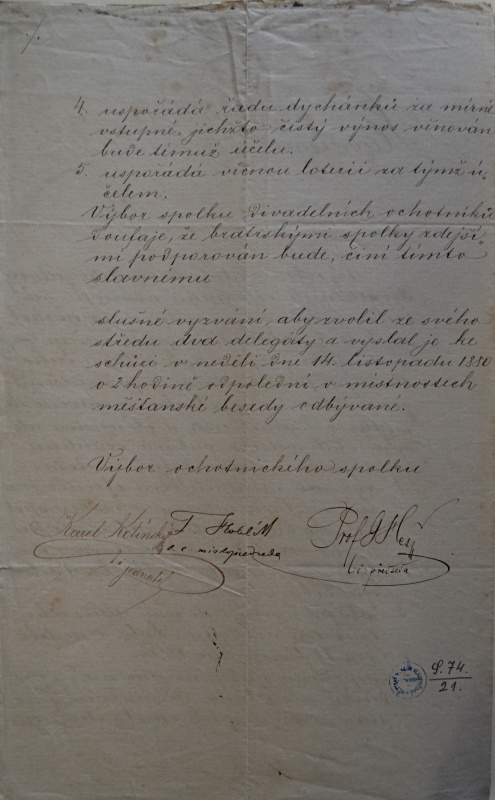 4. uspořádá řadu dychánků za mírné
vstupné, jichžto čistý výnos věnován
bude témuž účelu.
5. uspořádá věcnou loterii za týmž ú-
čelem.
Výbor spolku divadelních ochotníků
doufaje, že bratrskými spolky zdejší-
mi podporován bude, činí tímto
slavnému
slušné vyzvání, aby zvolil ze svého
středu dva delegáty a vyslal je ke
schůzi v neděli dne 14. listopadu 1880
o 2 hodině odpolední v místnostech
měšťanské besedy odbývané.
Výbor ochotnického spolku
Karel
t. č. místopředseda
t. č. jednatel
Prof
t. č. předseda
S. 74.
21.